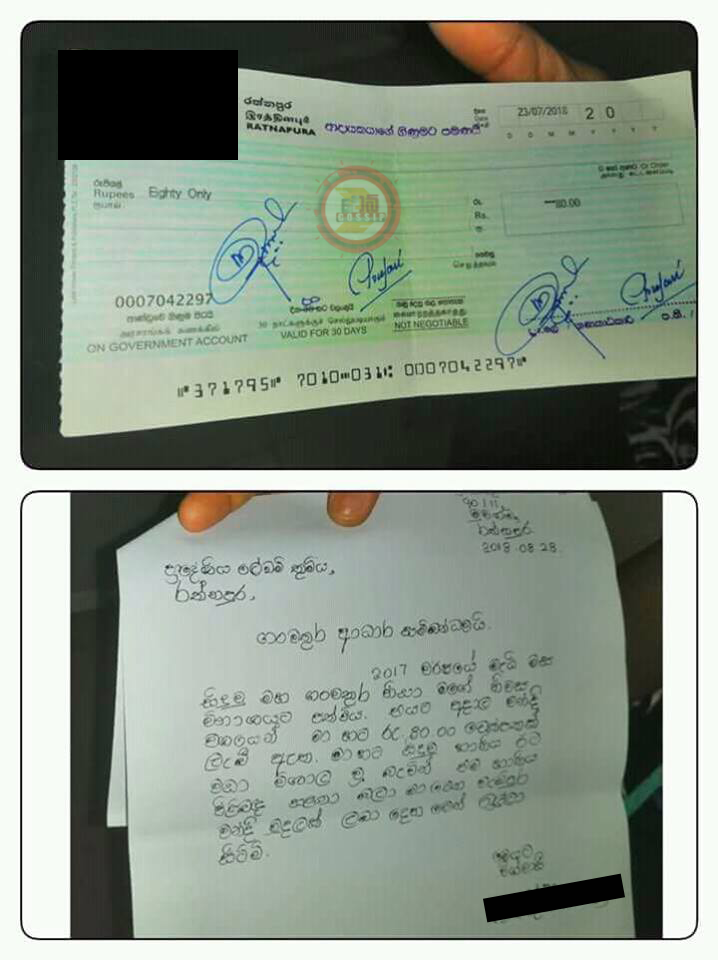 රත්නපුර
இரத்தினபுரி
RATNAPURA
ආදායකයාගේ ගිණුමට පමණයි
දිනය
Date
23/07/2018 2 0
D D M M Y Y Y Y
රුපියල්
Rupees Eighty Only
ரூபாய்
රු.
Rs.
ரூ.
80.00
GOSSIP
0007042297
ආණ්ඩුවේ ගිණුම පිටයි
அரசாங்கக் கணக்கில்
ON GOVERNMENT ACCOUNT
30 நாட்களுக்குச் செல்லுபடியாகும்
VALID FOR 30 DAYS
NOT NEGOTIABLE
⑈371795⑈ 7010⑉031⑆ 0007042297⑈
90/11
රත්නපුර
2018.08.28.
ප්‍රාදේශීය ලේකම් තුමිය,
රත්නපුර,
ගංවතුර ආධාර සම්බන්ධවයි.
2017 වර්ෂයේ මැයි මස
සිදුවූ මහ ගංවතුර නිසා මගේ නිවස
විනාශයට පත්විය. එයට අදාල වන්දි
වශයෙන් මා හට රු. 80.00 චෙක්පතක්
ලැබී ඇත. මා හට සිදුවූ හානිය රට
වඩා විශාල වූ බැවින් එම හානිය
පිළිබඳ සොයා බලා මා හට
වන්දි මුදලක් ලබා දෙන මෙන් ඉල්ලා
සිටිමි.
මෙයට
විශ්වාසි